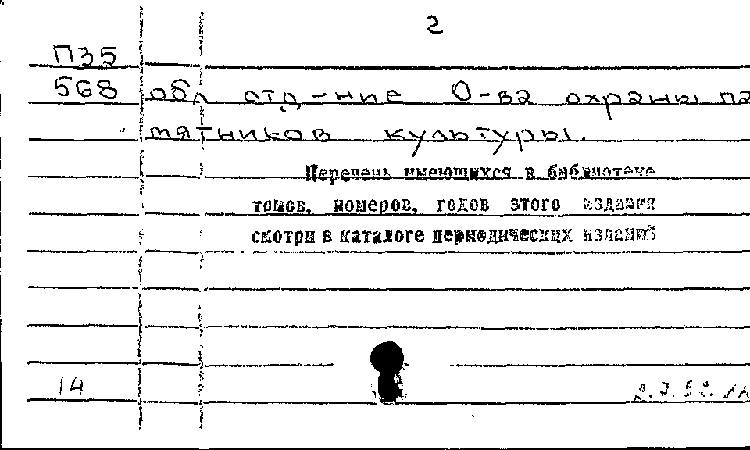 2
П35
568 обл отд-ние О-ва охраны па
мятников культуры.
Перечень имеющихся в библиотеке
томов, номеров, годов этого издания
смотри в каталоге периодических изданий
14